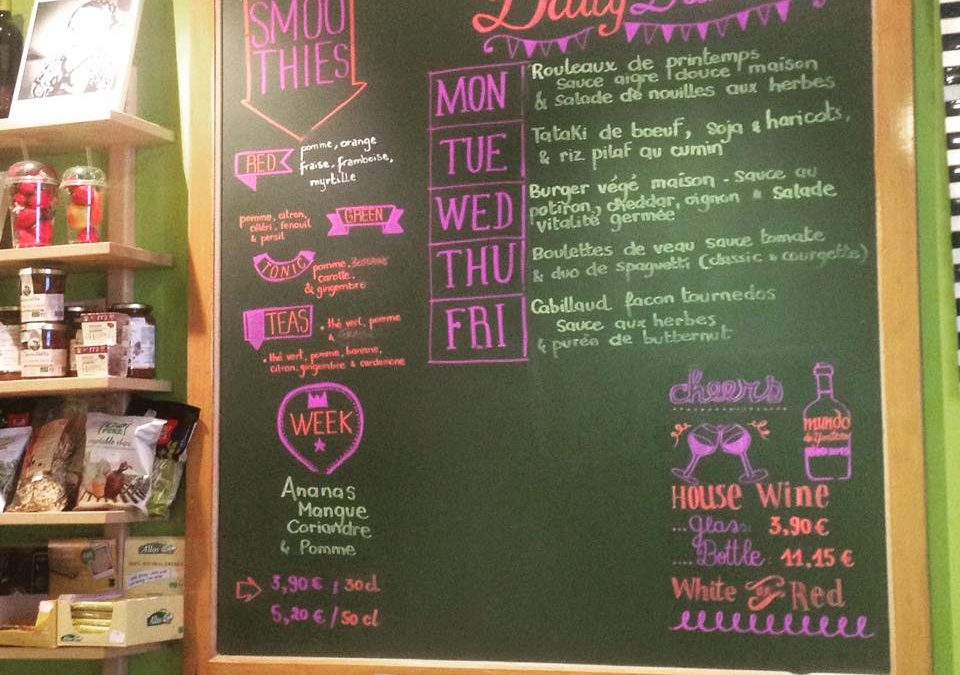 SMOO
THIES
RED
pomme, orange
fraise, framboise,
myrtille
pomme, citron,
céléri, fenouil
& persil
GREEN
TONIC
pomme,
carotte,
& gingembre
TEAS
• thé vert, pomme
&
• thé vert, pomme, banane,
citron, gingembre & cardamone
WEEK
Ananas
Mangue
Coriandre
& Pomme
3,90 € / 30cl
5,20 € / 50 cl
Daily
MON
Rouleaux de printemps
Sauce aigre douce maison
& Salade de nouilles aux herbes
TUE
Tataki de boeuf, soja & haricots,
& riz pilaf au cumin
WED
Burger végé maison - Sauce au
potiron, cheddar, oignon & Salade
vitalité germée
THU
Boulettes de veau sauce tomate
& duo de spaguetti (classic & courgette)
FRI
Cabillaud façon tournedos
Sauce aux herbes
& purée de butternut
cheers
mundo
de
HOUSE WINE
...Glass: 3,90 €
....Bottle: 11,15 €
White or Red
vegetable chips
Allos
Allos